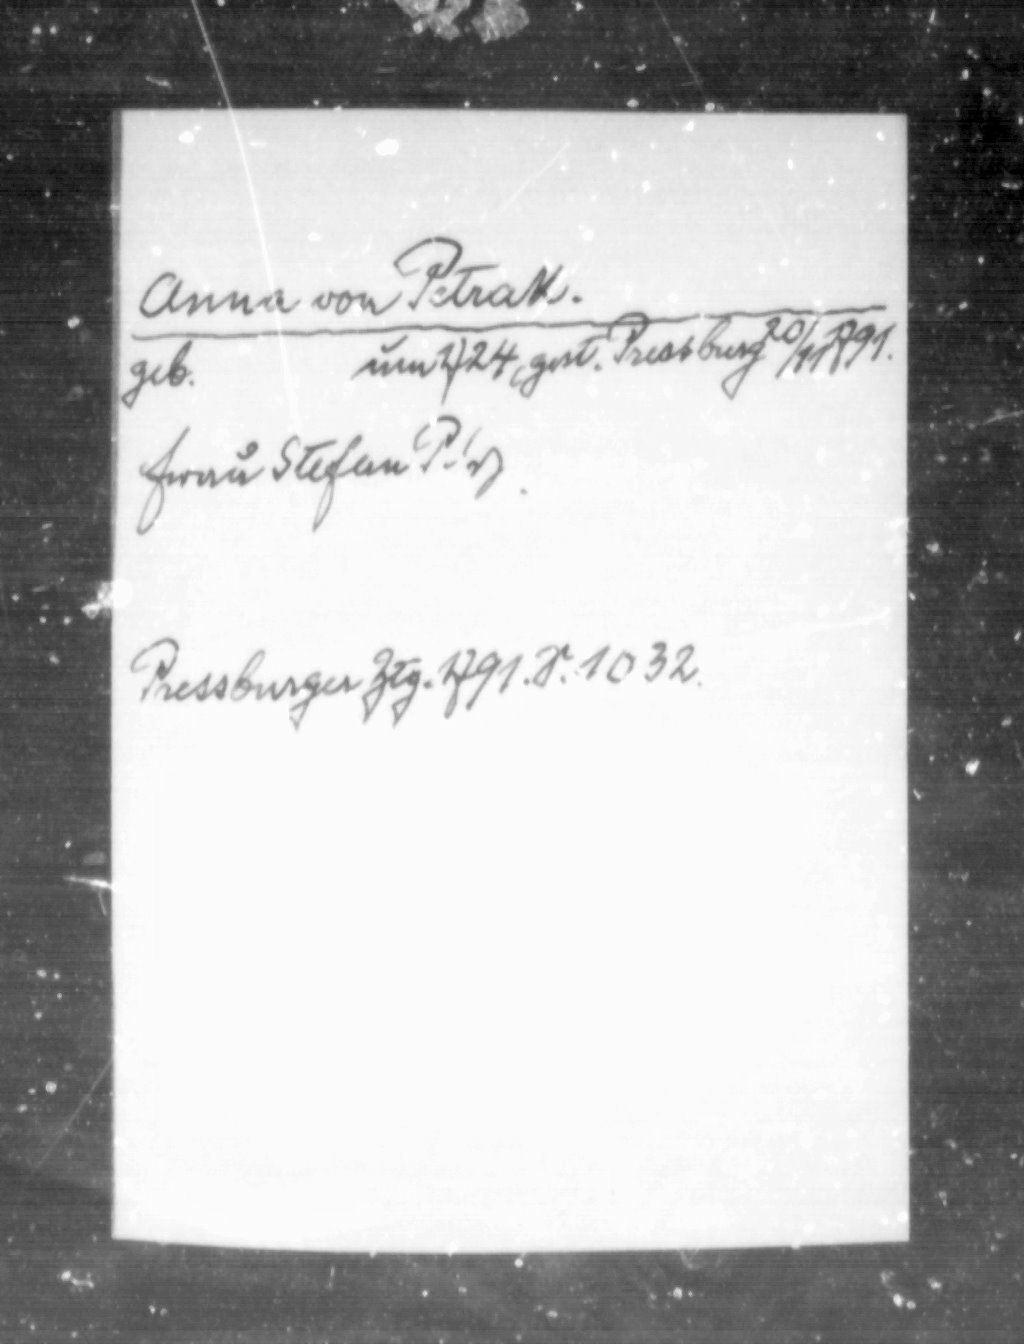 Anna von Petrak.
geb. um 1724, gest. Pressburg 20/11 1791.
Frau Stefan P.
Pressburger Ztg. 1791. S. 1032.